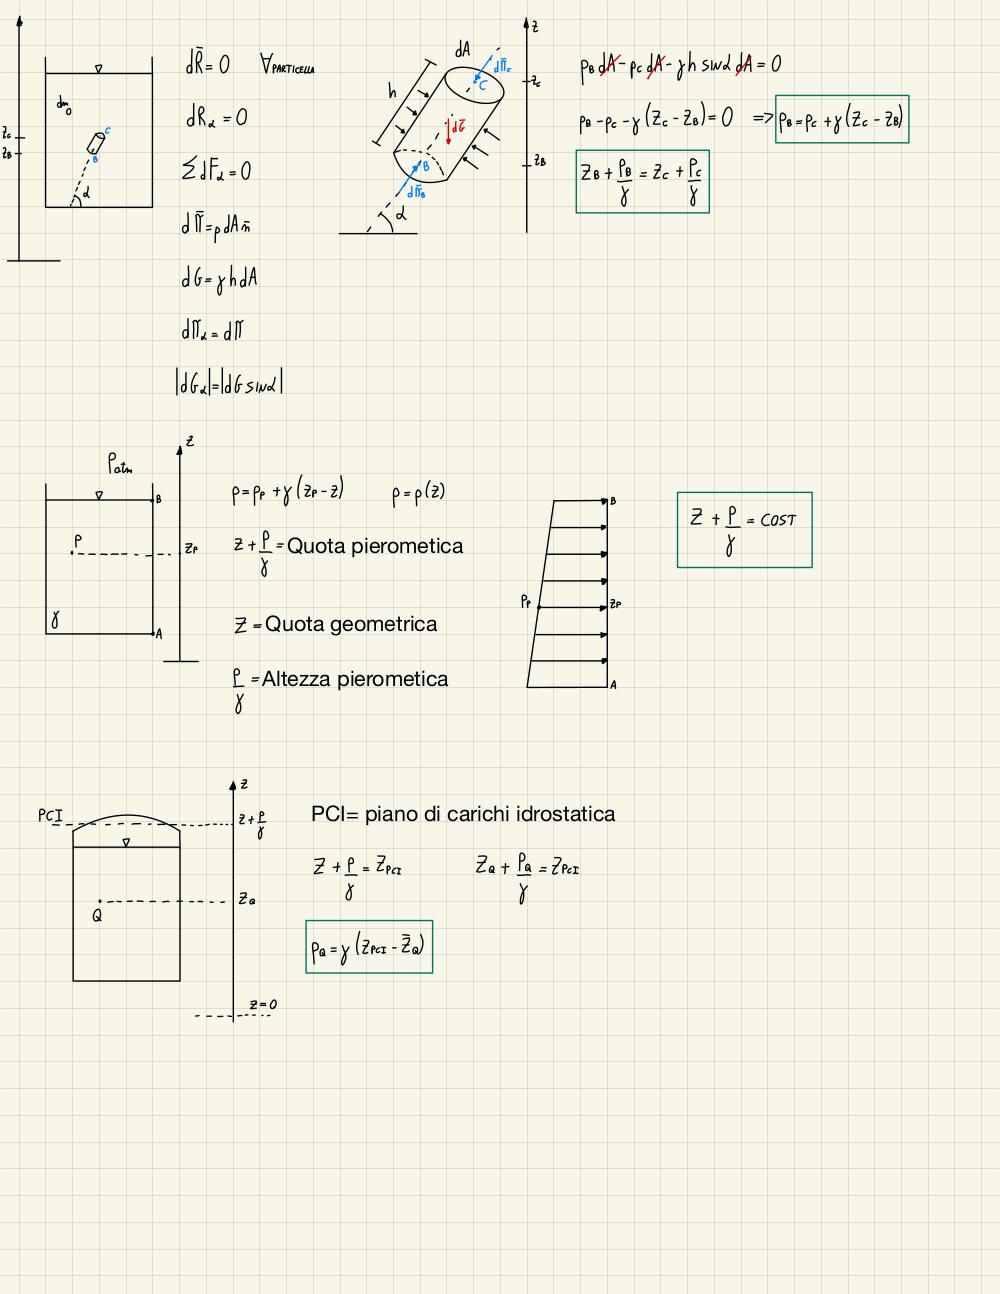 dR̄ = 0   ∀PARTICELLA
dRα = 0
∑dFα = 0
dΠ̄ = p dA n̄
dG = γ h dA
dΠα = dΠ
|dGα| = |dG sinα|
Zc
ZB
dm0
C
B
α
h
dA
dΠ̄c
C
dḠ
B
dΠ̄B
α
z
zc
zB
pB dA - pc dA - γ h sinα dA = 0
pB - pc - γ (Zc - ZB) = 0   => pB = pc + γ (Zc - ZB)
ZB + pB/γ = Zc + pc/γ
Patm
z
B
P
ZP
γ
A
p = pP + γ (zP - z)   p = p(z)
z + p/γ = Quota pierometica
Z = Quota geometrica
p/γ = Altezza pierometica
B
PP
ZP
A
Z + P/γ = COST
z
PCI
z + p/γ
ZQ
Q
z=0
PCI= piano di carichi idrostatica
Z + p/γ = ZPCI   ZQ + pQ/γ = ZPCI
pQ = γ (ZPCI - Z̄Q)